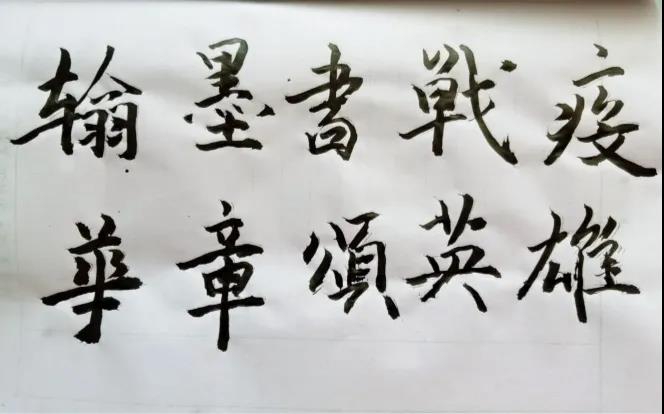 翰墨書戰疫
華章頌英雄